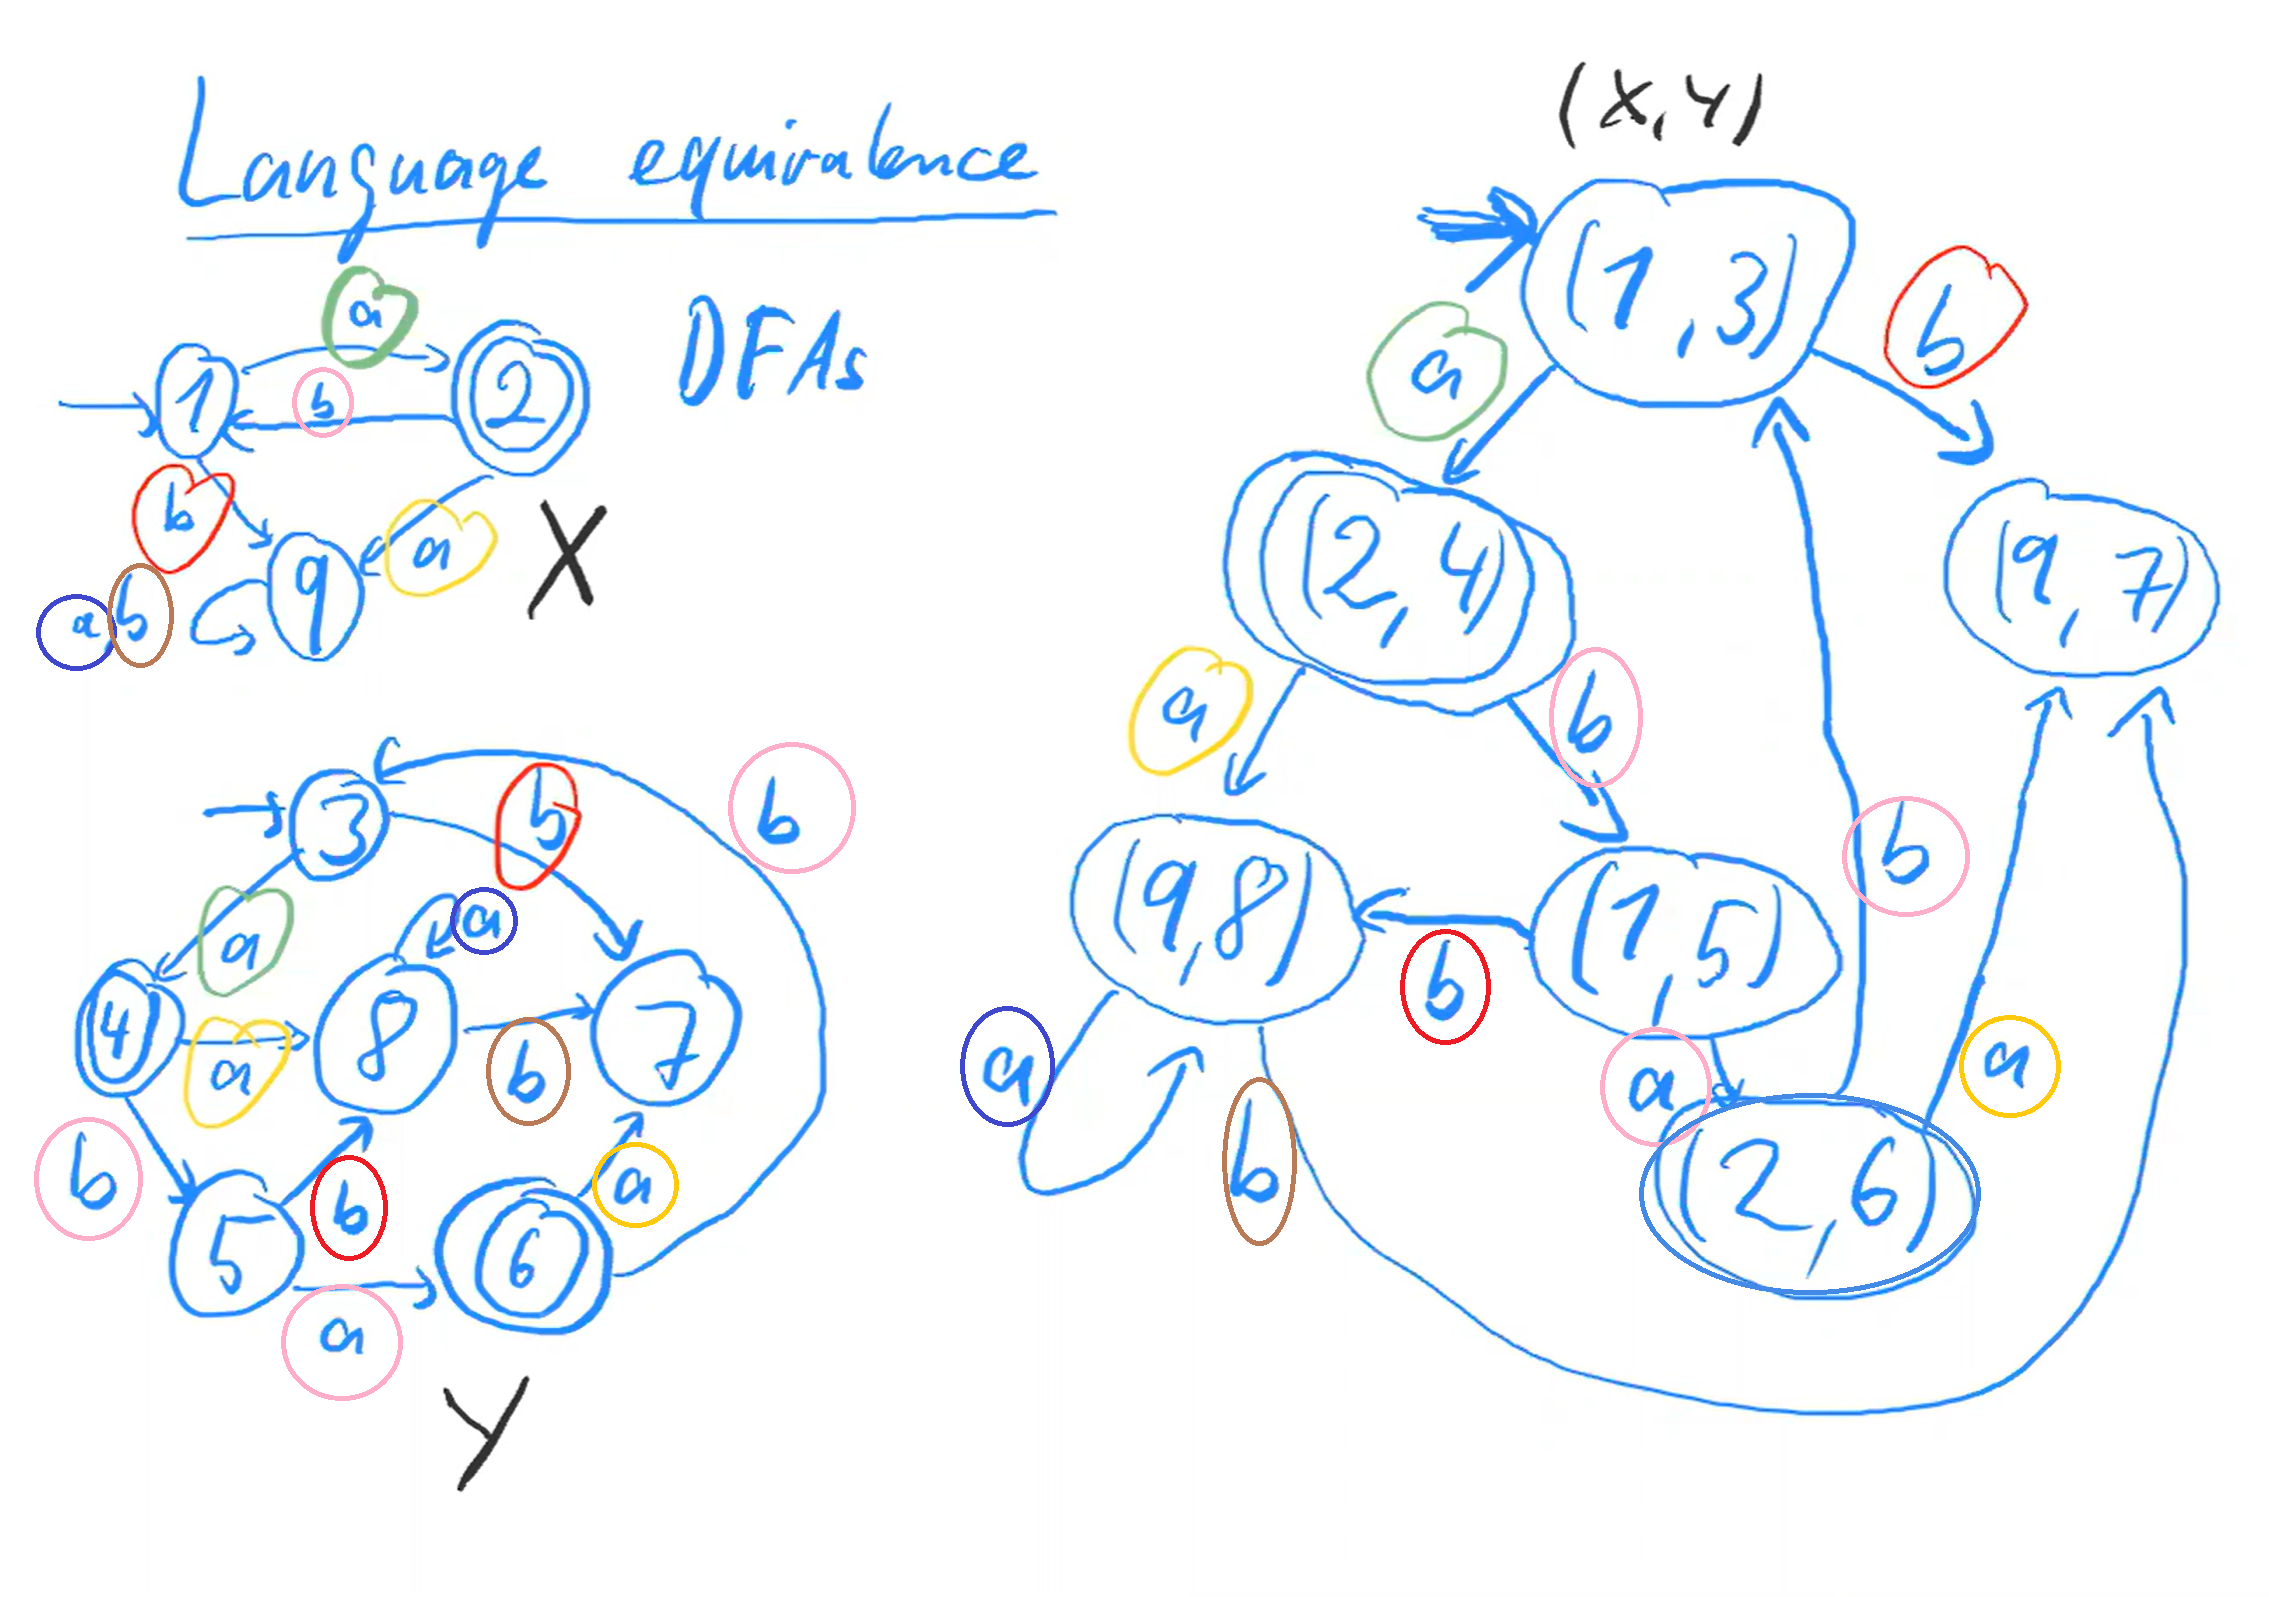 Language equivalence
DFAs
a
1
b
2
b
9
a
a b
X
3
b
b
a
a
4
a
8
b
7
b
5
b
a
6
a
Y
(X, Y)
(1, 3)
a
b
(2, 4)
(9, 7)
a
b
(9, 8)
b
(1, 5)
b
a
b
a
(2, 6)
a